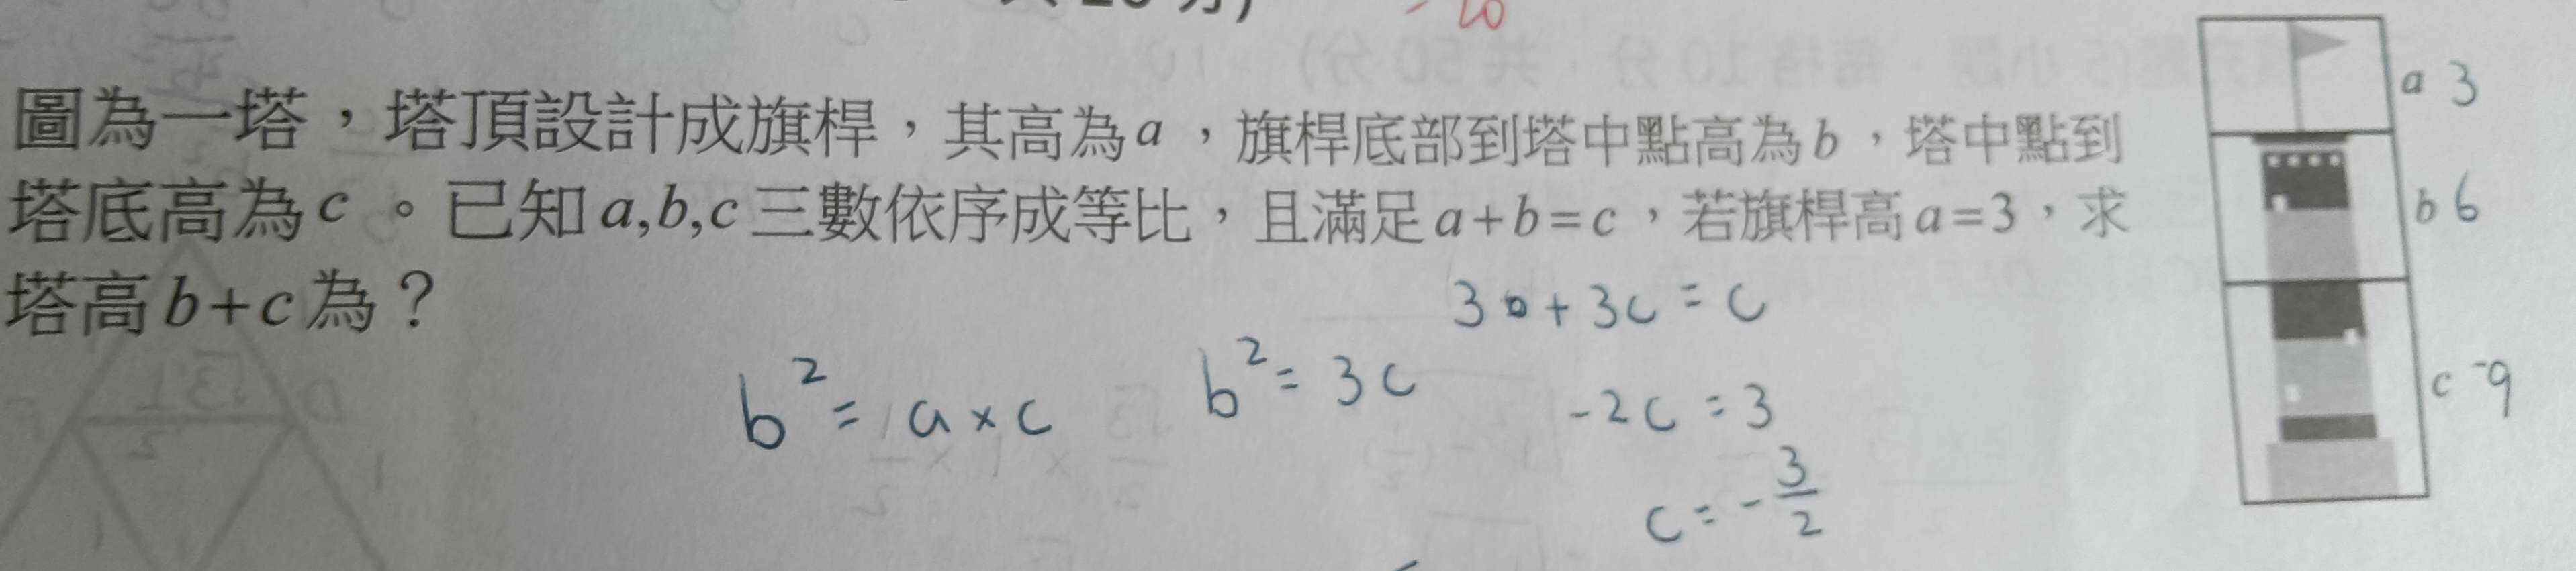 20
圖為一塔，塔頂設計成旗桿，其高為a，旗桿底部到塔中點高為b，塔中點到
塔底高為c。已知a,b,c三數依序成等比，且滿足a+b=c，若旗桿高a=3，求
塔高b+c為？
3b+3c=c
b²=a×c
b²=3c
-2c=3
c=-3/2
a 3
b 6
c -9